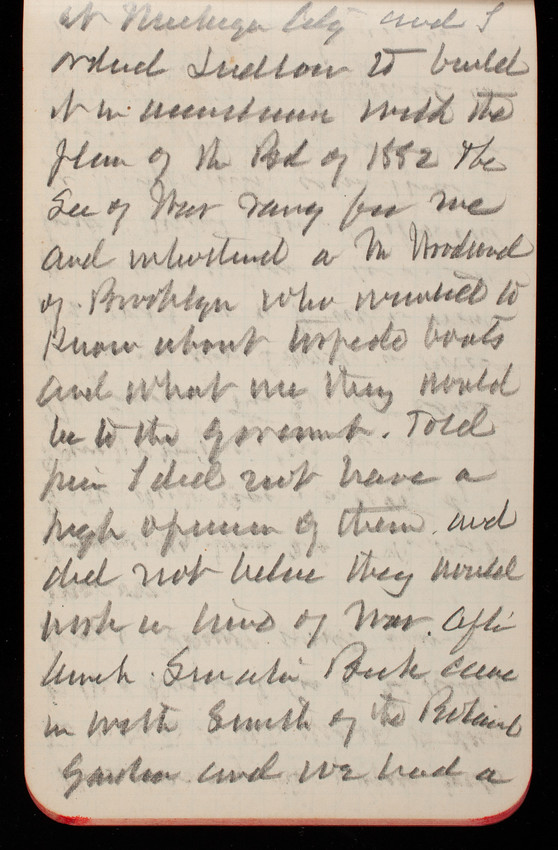 at Michigan City and I
ordered Ludlow to build
it in accordance with the
plan of the Bd of 1882 The
Sec of War rang for me
and introduced a Mr Woodward
of Brooklyn who wanted to
know about torpedo boats
and what use they would
be to the Government. Told
him I did not have a
high opinion of them and
did not believe they would
work in time of War. After
lunch Senator Beck came
in with Smith of the Botanic
Garden and we had a